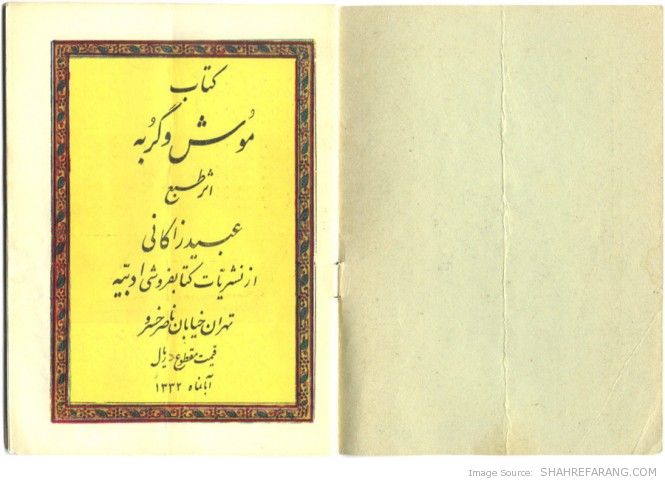 کتاب
موُش وگرُبه
اثر طبع
عبید زاکانی
از نشریّات کتابفروشی ادبیّه
تهران خیابان ناصر خسرو
قیمت مقطوع ریال
آبانماه ۱۳۳۲
Image Source: SHAHREFARANG.COM